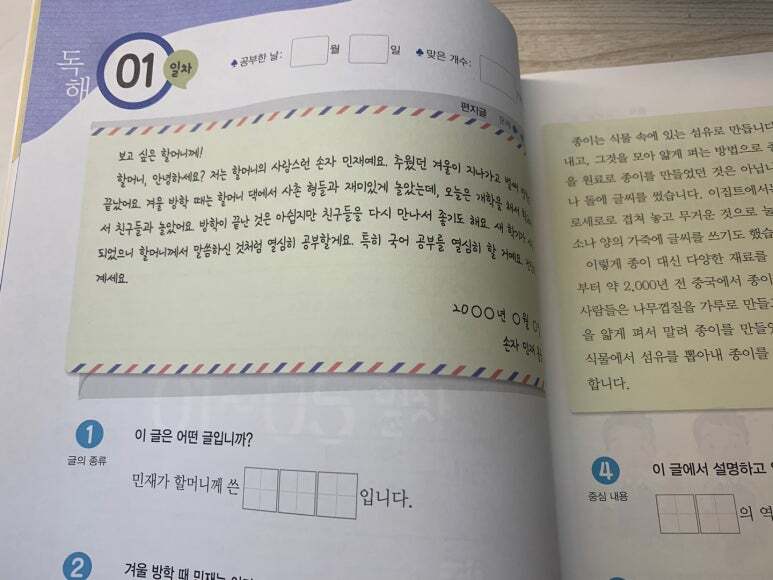 독해
01
일차
공부한 날:
월
일
맞은 개수:
편지글
보고 싶은 할머니께!
할머니, 안녕하세요? 저는 할머니의 사랑스런 손자 민재예요. 추웠던 겨울이 지나가고 벌써
끝났어요. 겨울 방학 때는 할머니 댁에서 사촌 형들과 재미있게 놀았는데, 오늘은 개학을 해서
서 친구들과 놀았어요. 방학이 끝난 것은 아쉽지만 친구들을 다시 만나서 좋기도 해요. 새 학기가
되었으니 할머니께서 말씀하신 것처럼 열심히 공부할게요. 특히 국어 공부를 열심히 할 거예요.
계세요.
20○○년 ○월
손자 민재
1
글의 종류
이 글은 어떤 글입니까?
민재가 할머니께 쓴
입니다.
2
겨울 방학 때 민재는
종이는 식물 속에 있는 섬유로 만듭니다
내고, 그것을 모아 얇게 펴는 방법으로
을 원료로 종이를 만들었던 것은 아닙니
나 돌에 글씨를 썼습니다. 이집트에서
로세로로 겹쳐 놓고 무거운 것으로
소나 양의 가죽에 글씨를 쓰기도 했습
이렇게 종이 대신 다양한 재료를
부터 약 2,000년 전 중국에서 종이
사람들은 나무껍질을 가루로 만들
을 얇게 펴서 말려 종이를 만들
식물에서 섬유를 뽑아내 종이를
합니다.
4
중심 내용
이 글에서 설명하고
의 역